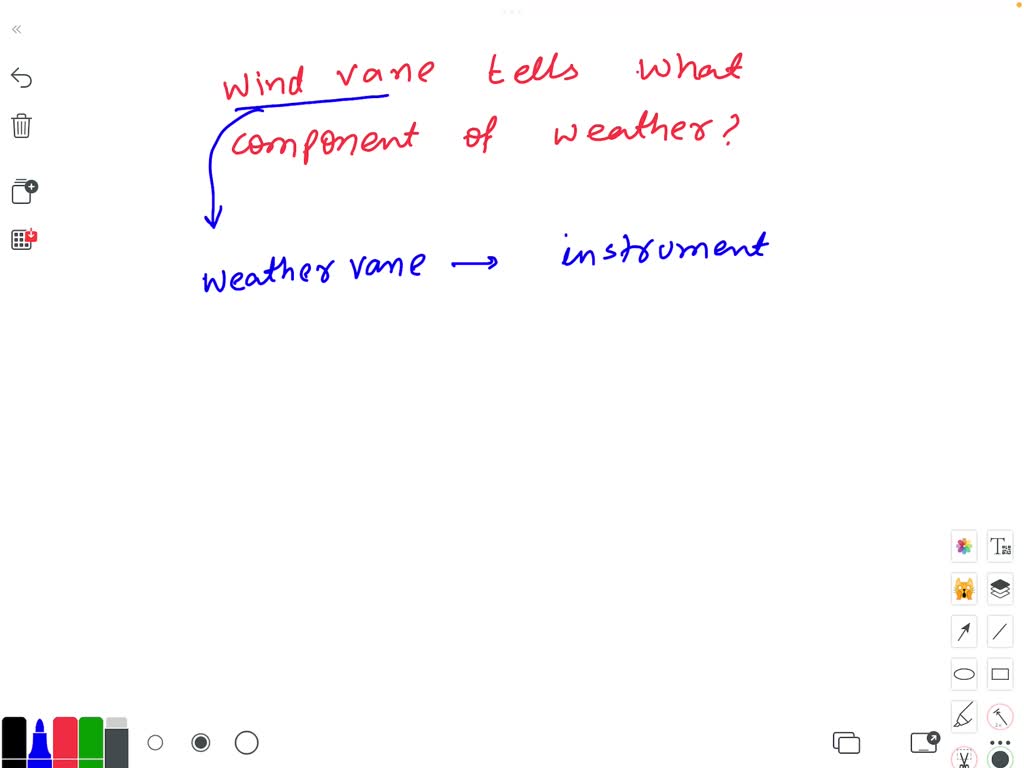 Wind vane tells what
component of weather?
Weather vane → instrument